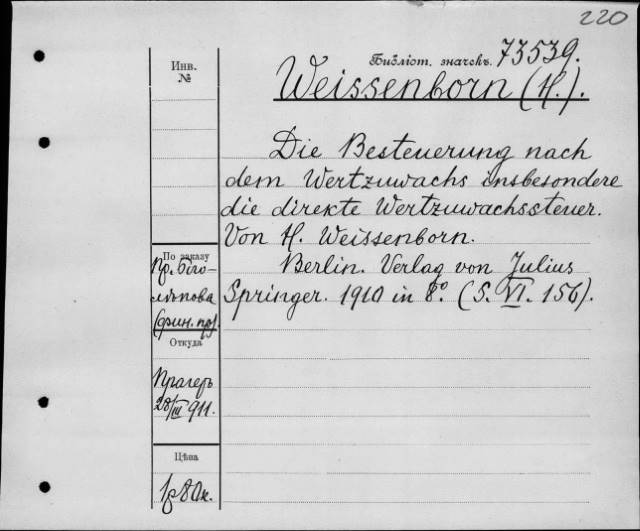 220
Библіот. значекъ. 73539.
Инв.
№
Weissenborn (H.).
Die Besteuerung nach
dem Wertzuwachs insbesondere
die direkte Wertzuwachssteuer.
Von H. Weissenborn.
Berlin. Verlag von Julius
Springer. 1910 in 8.° (S. VI. 156).
По заказу
Пр. Бого-
лѣпова
(фин. пр.)
Откуда
Прагеръ
28/III 911.
Цѣна
1р 80к.